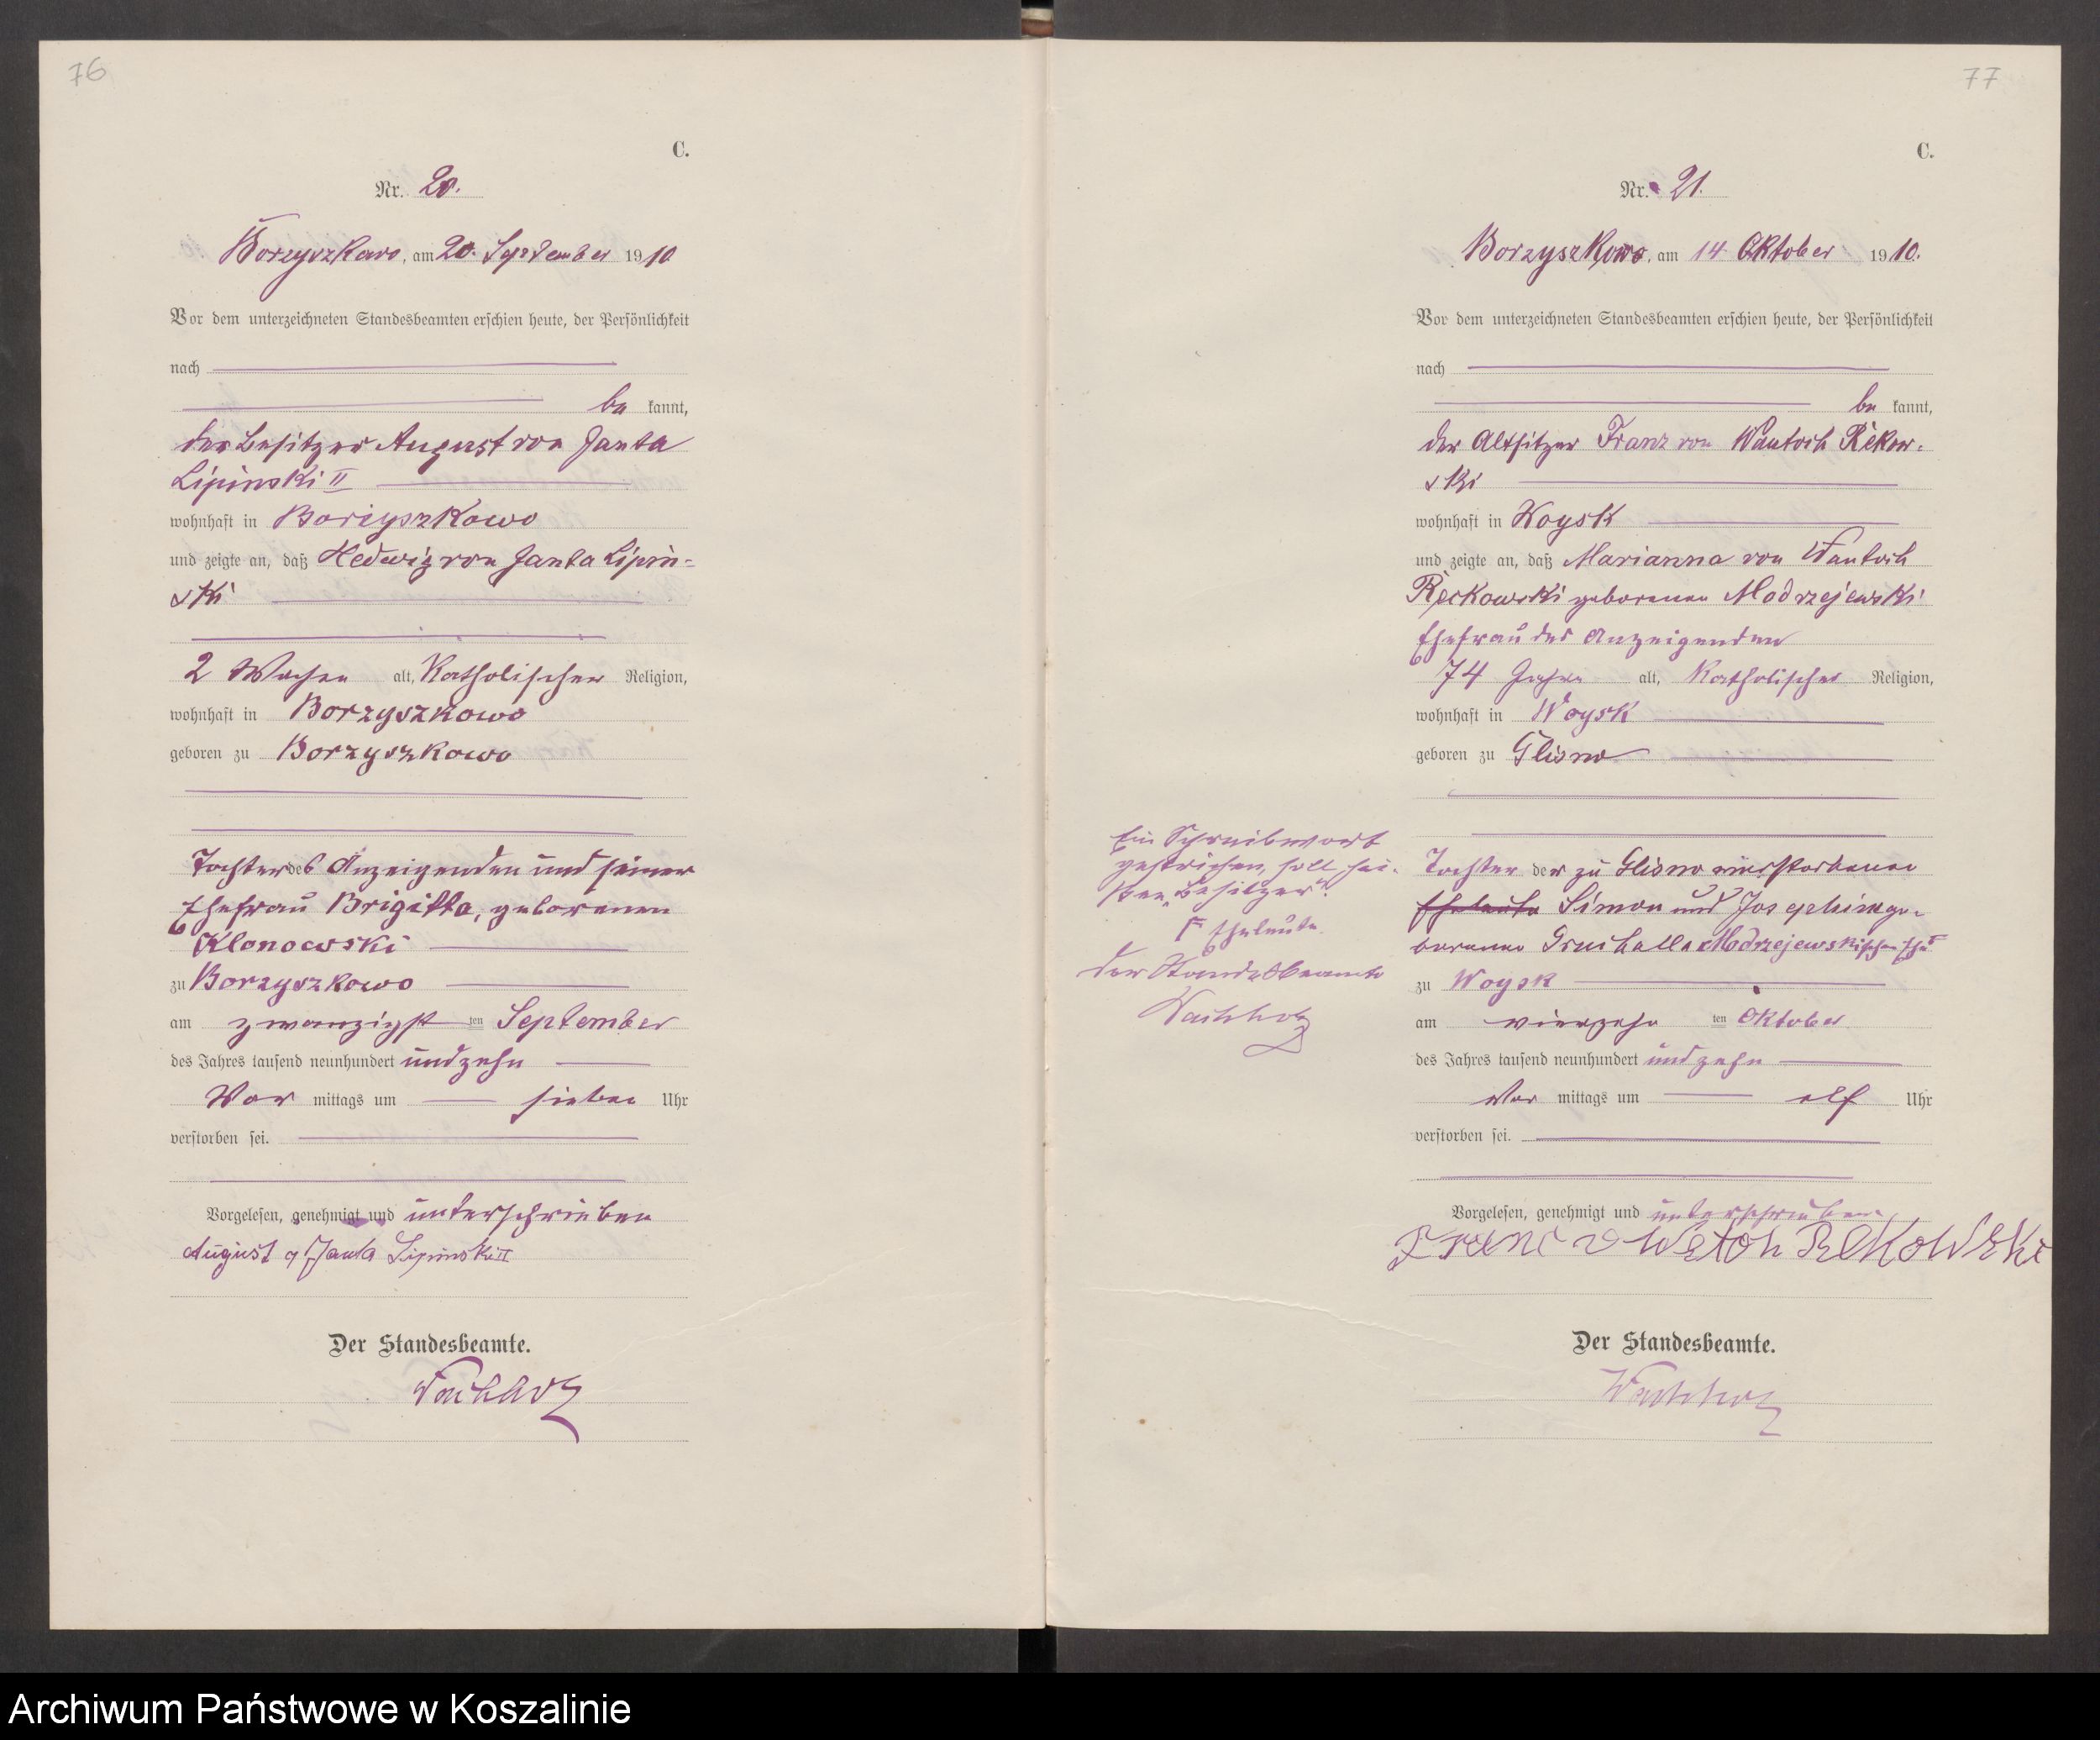 76
C.
Nr. 20.
Borzyszkowo, am 20. September 1910
Vor dem unterzeichneten Standesbeamten erschien heute, der Persönlichkeit
nach
be kannt,
der Besitzer August von Janta
Lipinski II
wohnhaft in Boriyszkowo
und zeigte an, daß Hedwig von Janta Lipin=
ski
2 Wochen alt, Katholischer Religion,
wohnhaft in Borzyszkowo
geboren zu Borzyszkowo
Tochter des Anzeigenden und seiner
Ehefrau Brigitta, geborenen
Klonowski
zu Borzyszkowo
am zwanzigst ten September
des Jahres tausend neunhundert und zehn
Vor mittags um sieben Uhr
verstorben sei.
Vorgelesen, genehmigt und unterschrieben
August v Janta Lipinski II
Der Standesbeamte.
Wachholz
77
C.
Nr. 21.
Borzyszkowo, am 14. Oktober 1910.
Vor dem unterzeichneten Standesbeamten erschien heute, der Persönlichkeit
nach
be kannt,
der Altsitzer Franz von Wantoch Rekow=
ski
wohnhaft in Woysk
und zeigte an, daß Marianna von Wantoch
Reckowski geborenen Modrzejewski
Ehefrau des Anzeigenden
74 Jahre alt, Katholischer Religion,
wohnhaft in Woysk
geboren zu Glisno
Tochter der zu Glisno verstorbenen
Eheleute Simon und Josephine ge-
borenen Modrzejewskischen
zu Woysk
am vierzehn ten Oktober
des Jahres tausend neunhundert und zehn
Vor mittags um elf Uhr
verstorben sei.
Vorgelesen, genehmigt und unterschrieben
Franc v Wetoh Rekowski
Der Standesbeamte.
Wachholz
Ein Schreibwort
gestrichen, soll hei-
ßen „Besitzer".
Γ Eheleute.
Der Standesbeamte
Wachholz
Archiwum Państwowe w Koszalinie